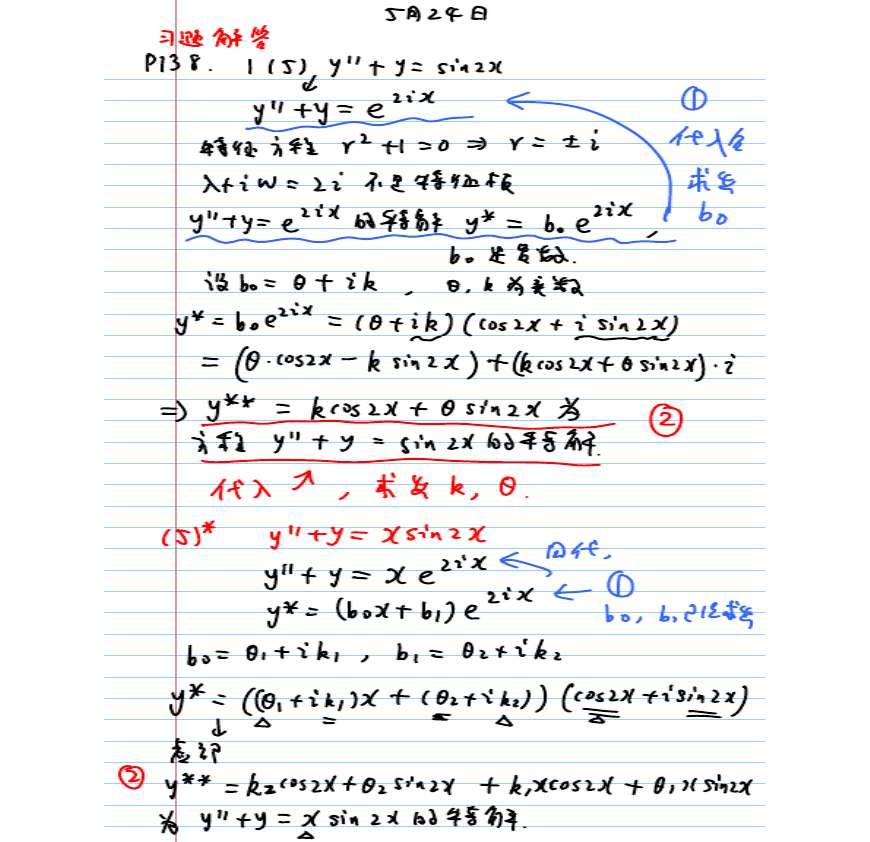 5月24日
习题解答
P138. 1(5) y'' + y = sin2x
y'' + y = e^{2ix}
①
代入
求出
b₀
特征方程 r² + 1 = 0 ⇒ r = ± i
λ + iw = 2i 不是特征根
y'' + y = e^{2ix} 的特解 y* = b₀ e^{2ix}
b₀ 是复数.
设 b₀ = θ + ik , θ, k 为实数
y* = b₀e^{2ix} = (θ + ik)(cos2x + i sin2x)
= (θ·cos2x − k sin2x) + (k cos2x + θ sin2x)·i
⇒ y** = k cos2x + θ sin2x 为
方程 y'' + y = sin 2x 的特解.
②
代入 ↗ , 求出 k, θ.
(5)* y'' + y = x sin2x
y'' + y = x e^{2ix} ← 回代,
y* = (b₀x + b₁) e^{2ix} ← ①
b₀, b₁已经求出
b₀ = θ₁ + ik₁ , b₁ = θ₂ + ik₂
y* = ((θ₁ + ik₁)x + (θ₂ + ik₂)) (cos2x + i sin2x)
↓
虚部
② y** = k₂cos2x + θ₂ sin2x + k₁xcos2x + θ₁x sin2x
为 y'' + y = x sin 2x 的特解.